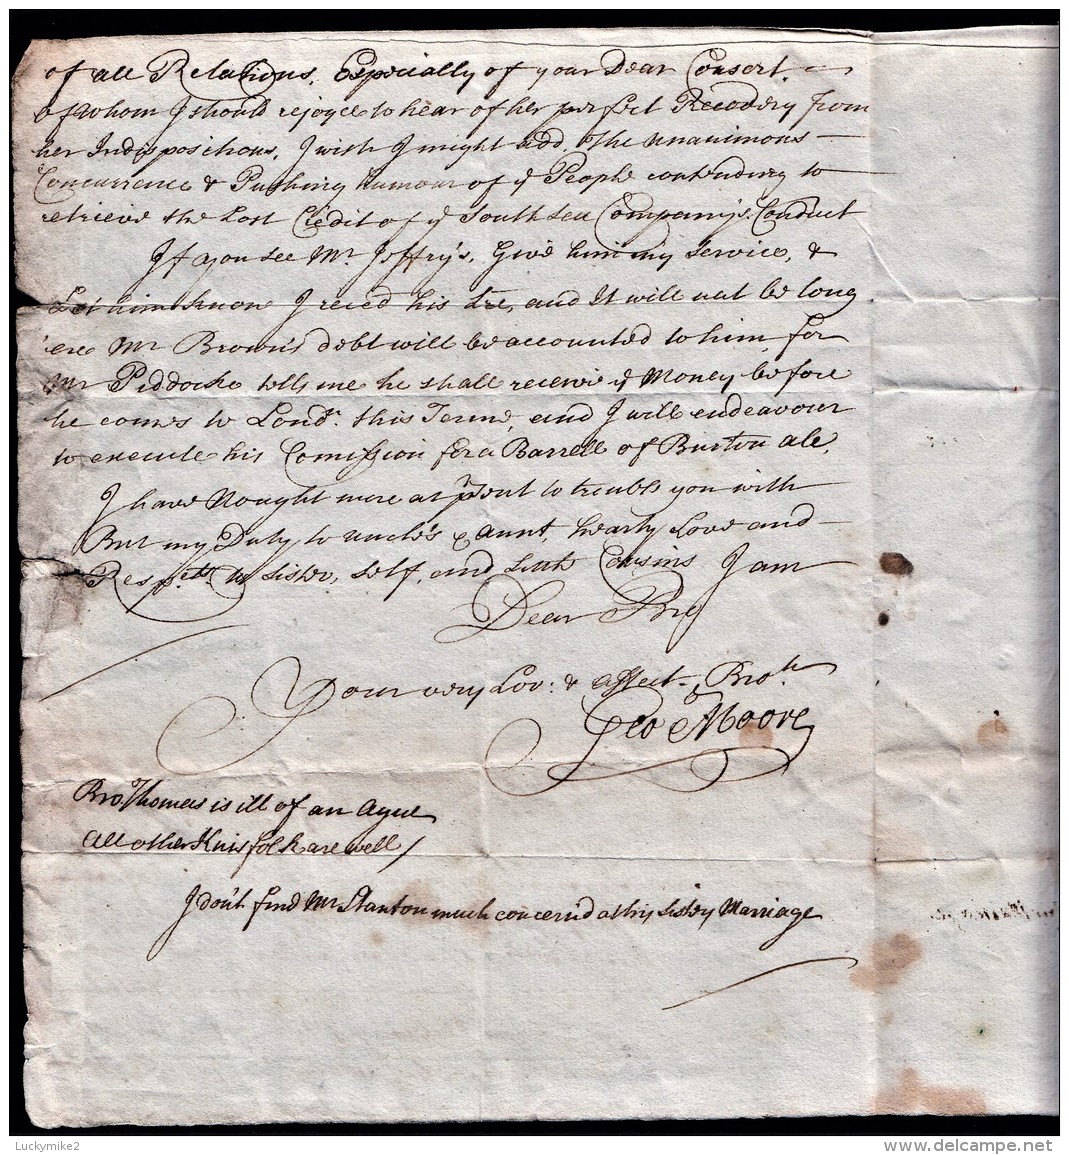 of all Relations. Especially of your Dear Consort.
of whom I should rejoyce to hear of her perfect Recovery from
her Indispositions, I wish I might add. The unanimous
Concurrence & Pushing humour of ye People contending to
retrieve the Lost Credit of ye South Sea Company's Conduct
If you see Mr. Jeffry's, Give him my service, &
Let him know I reced his Lre, and It will not be long
'ere Mr Brown's debt will be accounted to him, for
Mr Piddocke tells me he shall receive ye Money before
he comes to Londn. this Terme, and I will endeavour
to execute his Comission for a Barrell of Burton ale,
I have Nought more at prsent to trouble you with
But my Duty to Uncle's & Aunt, hearty Love and
Respects to sister, self, and little Cousins I am
Dear Bro
Your very Lov: & affect. Broth
Geo Moore
Bro. Thomas is ill of an Ague
All other Kinsfolk are well /
I don't find Mr Stanton much concern'd at his sistrs Marriage
Luckymike2
www.delcampe.net